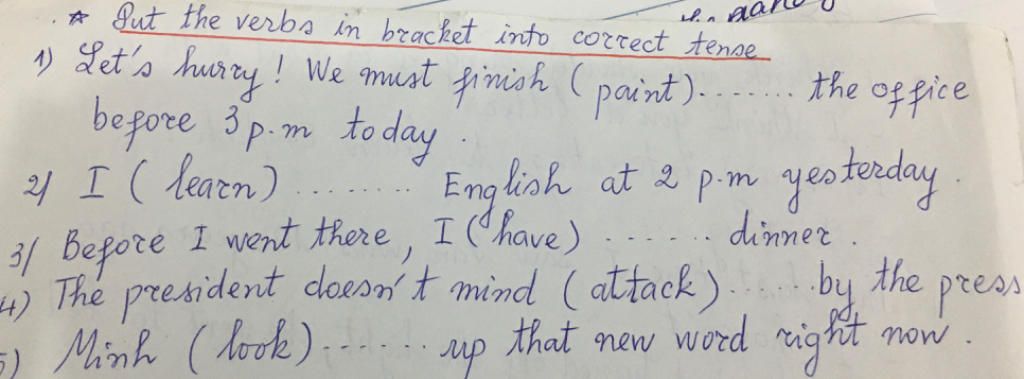 * Put the verbs in bracket into correct tense
1) Let's hurry! We must finish (paint)........ the office
before 3 p.m today.
2/ I (learn) ........ English at 2 p.m yesterday.
3/ Before I went there, I (have) ...... dinner.
4) The president doesn't mind (attack)...... by the press
5) Minh (look)....... up that new word right now.